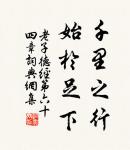 千里之行
始於足下
老子德經第六十
四章詞典網集